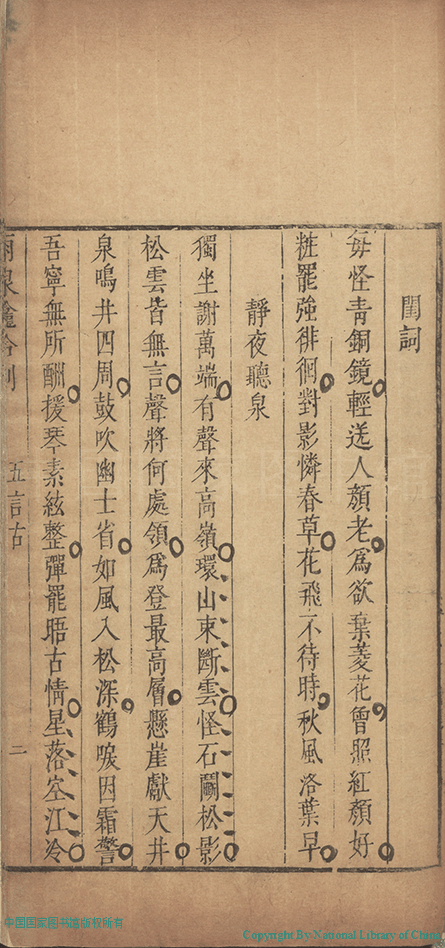 閨詞
每怪青銅鏡輕送人顏老爲欲棄菱花曾照紅顏好
粧罷強徘徊對影憐春草花飛不待時秋風洛葉早
靜夜聽泉
獨坐謝萬端有聲來高嶺環山束斷雲怪石鬭松影
松雲皆無言聲將何處領爲登最高層懸崖獻天井
泉鳴井四周鼓吹幽士省如風入松深鶴唳因霜警
吾寧無所酬援琴素絃整彈罷晤古情星落空江冷
五言古
二
中国国家图书馆版权所有
Copyright By National Library of China